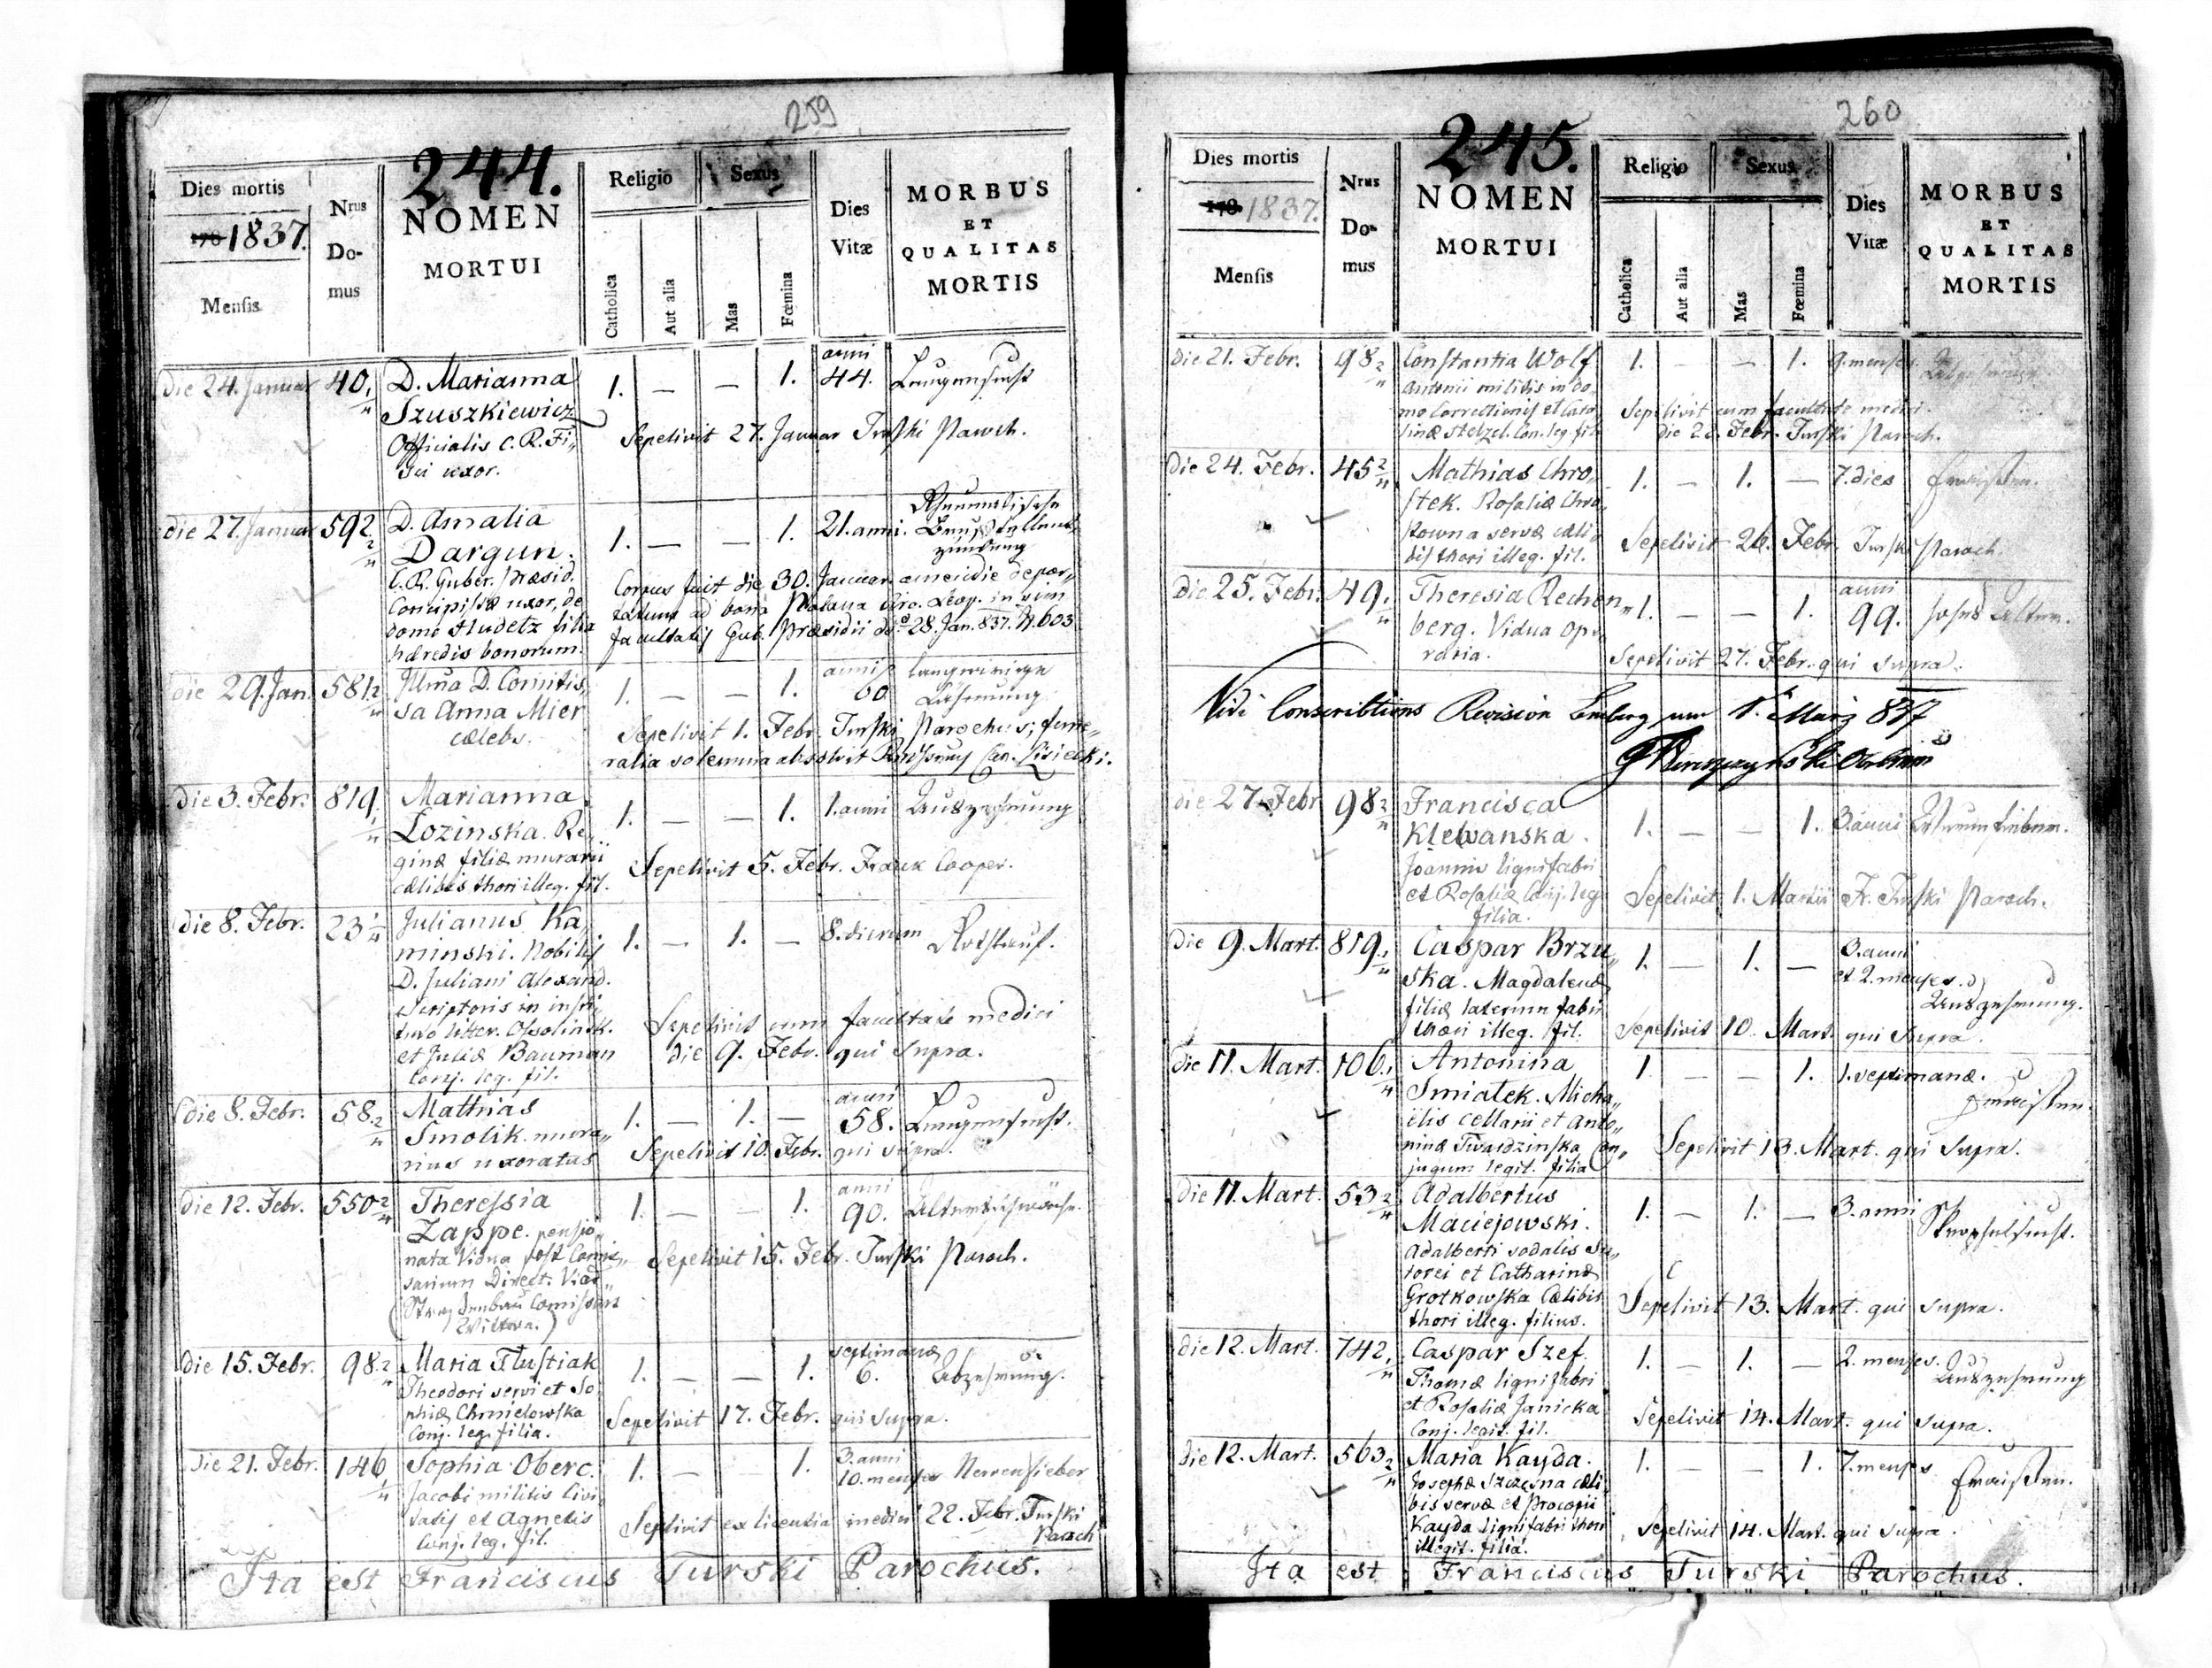 259
244.
Dies mortis
1837.
Mensis
Nrus
Do-
mus
NOMEN
MORTUI
Religio
Catholica
Aut alia
Sexus
Mas
Fœmina
Dies
Vitæ
MORBUS
ET
QUALITAS
MORTIS
die 24. Januar 40. D. Marianna 1. — — 1. anni 44. Lungensucht
Szuszkiewicz
Officialis C. R. Fi„
sci uxor.
Sepelivit 27. Januar Turski Paroch.
die 27. Januar 592 D. Amalia 1. — — 1. 21. anni. Rheumatische
Dargun.
C. R. Guber. Præsid.
Concipistæ uxor, de
domo Studetz filia
hæredis bonorum.
zündung
Corpus fuit die 30. Januar. a meridie depor„
tatum ad bona Circ. Leop. in vim
facultatis Gub. Præsidii dd. 28. Jan. 837. N. 603
die 29. Jan. 581 Illma D. Comitis„ 1. — — 1. annis 60 langwierige
sa Anna Mier
cælebs.
Lähmung
Sepelivit 1. Febr. Turski Parochus; fune„
ralia solemnia absolvit Can.
die 3. Febr. 819 Marianna 1. — — 1. 1. anni Auszehrung
Lozinska. Re„
ginæ filiæ murarii
cælibis thori illeg. fil.
Sepelivit 5. Febr. Frank Cooper.
die 8. Febr. 23 Julianus Ka„ 1. — 1. — 8. dierum Rothlauf.
minski. Nobilis
D. Juliani Alexand.
Scriptoris in insti„
tuto litter. Ossolinsk.
et Juliæ Bauman
Conj. leg. fil.
Sepelivit cum facultate medici
die 9. Febr. qui supra.
die 8. Febr. 58 Mathias 1. — 1. — anni 58. Lungensucht.
Smolik. mura„
rius uxoratus
Sepelivit 10. Febr. qui supra.
die 12. Febr. 550 Theressia 1. — — 1. anni 90. Altersschwäche.
Zappe. pensio„
nata Vidua post Comis„
sarium Direct. Viar„
(Strassenbau Comissärs
Wittwe.)
Sepelivit 15. Febr. Turski Paroch.
die 15. Febr. 98 Maria Tlustiak 1. — — 1. septimanæ 6. Abzehrung.
Theodori servi et So„
phiæ Chmielowska
Conj. leg. filia.
Sepelivit 17. Febr. qui supra.
die 21. Febr. 146 Sophia Oberc. 1. — — 1. 3. anni 10. menses Nervenfieber
Jacobi militis Civi„
et Agnetis
Conj. leg. fil.
Seplivit ex licentia medici 22. Febr. Turski
Paroch
Ita est Franciscus Turski Parochus.
260
245.
Dies mortis
1837.
Mensis
Nrus
Do-
mus
NOMEN
MORTUI
Religio
Catholica
Aut alia
Sexus
Mas
Fœmina
Dies
Vitæ
MORBUS
ET
QUALITAS
MORTIS
die 21. Febr. 98 Constantia Wolf 1. — — 1. 9. menses
Antonii militis in do„
mo Correctionis et Caro„
linæ Stelzel. Con. leg. fil.
Sepelivit cum facultate medici
die 22. Febr. Turski Paroch.
die 24. Febr. 45 Mathias Chro„ 1. — 1. — 7. dies Fraisen.
stek. Rosaliæ Chro„
stowna servæ cæli„
bis thori illeg. fil.
Sepelivit 26. Febr. Turski Paroch.
die 25. Febr. 49. Theresia Rechen„ 1. — — 1. anni 99. hohes Alter.
berg. Vidua ope„
raria.
Sepelivit 27. Febr. qui supra.
Vidi Conscribtions Revision Lemberg am 1. März 837
die 27. Febr 98 Francisca 1. — — 1. 3. anni Wurmfieber.
Klewanska.
Joannis lignifabri
et Rosaliæ Conj. leg.
filia.
Sepelivit 1. Martii Fr. Turski Paroch.
die 9. Mart. 819. Caspar Brzu„ 1. — 1. — 3. anni
et 2. menses. Auszehrung.
ska. Magdalenæ
filiæ laterum fabri
thori illeg. fil.
Sepelivit 10. Mart. qui supra.
die 11. Mart. 106. Antonina 1. — — 1. 1. septimanæ. Fraisen.
Smiatek. Micha„
elis cellarii et Anto„
ninæ Twardzinska Con„
jugum legit. filia
Sepelivit 13. Mart. qui supra.
die 11. Mart. 53 Adalbertus 1. — 1. — 3. anni Skrophelsucht.
Maciejowski.
Adalberti sodalis su„
torei et Catharinæ
Grotkowska Cælibis
thori illeg. filius.
Sepelivit 13. Mart. qui supra.
die 12. Mart. 742. Caspar Szef. 1. — 1. — 2. menses. Auszehrung
Thomæ lignifabri
et Rosaliæ Janicka
Conj. legit. fil.
Sepelivit 14. Mart. qui supra.
die 12. Mart. 563 Maria Kayda. 1. — — 1. 7. menses Fraisen.
Josephæ Szczesna cæli„
bis servæ et Procopii
Kayda lignifabri thori
illegit. filia.
Sepelivit 14. Mart. qui supra.
Ita est Franciscus Turski Parochus.